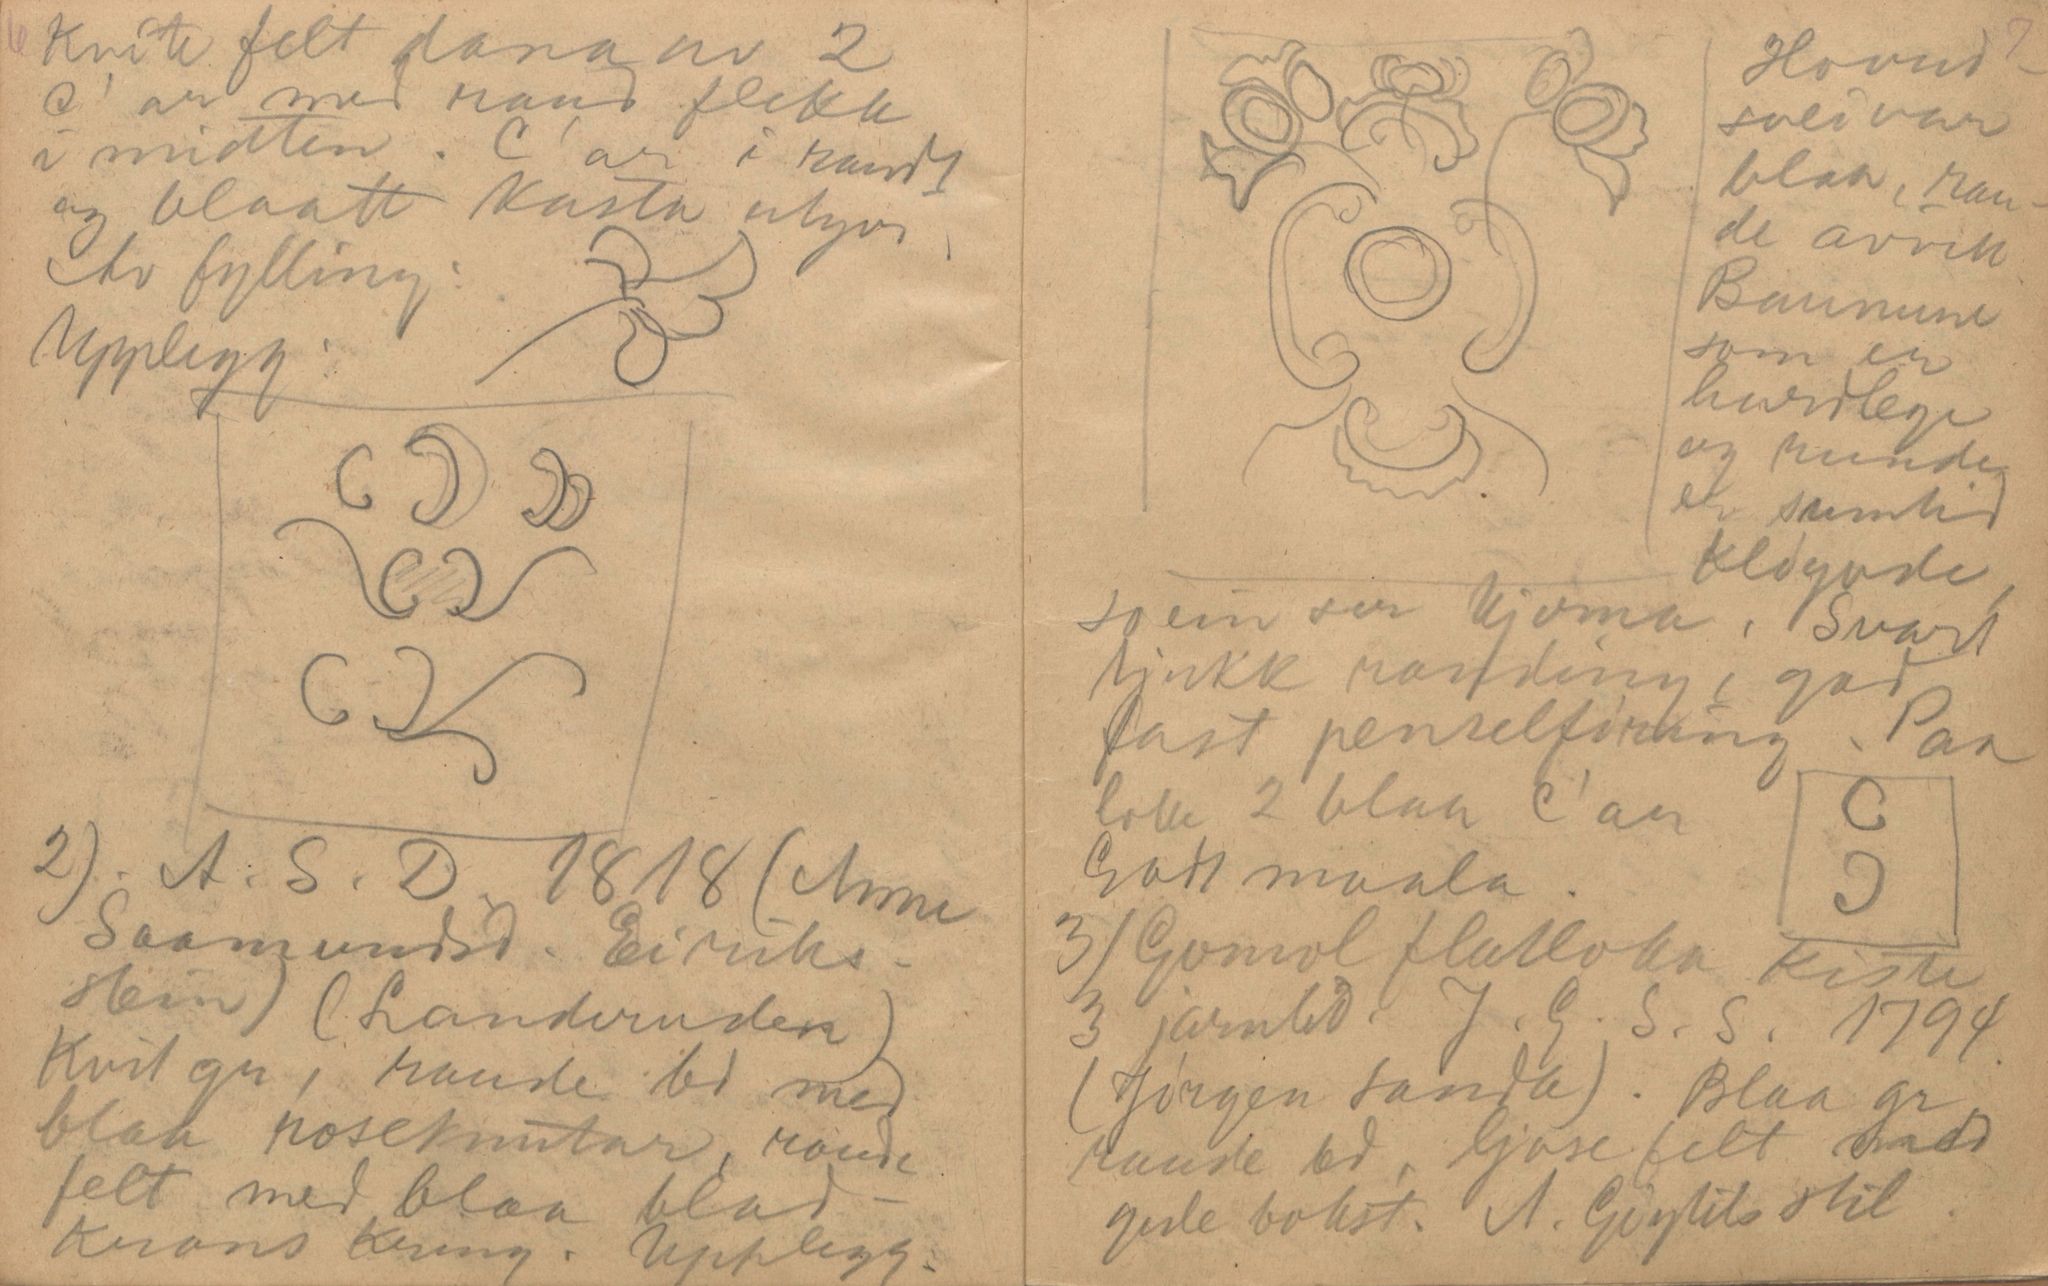 6
Kvite felt dana av 2
C'ar med raud flekk
i midten. C'ar i raudt
og blaatt kasta utyvi,
Av fylling:
Upplegg:
2). A. S. D. 1818 (Anne
Saamundsd. Eiriks-
stein) (Landeruden)
Kvit gr, raude bd med
blaa roseknutar, raude
felt med blaa blad-
krans kring. Upplegg:
7
Hovud-
sveivar
blaa, rau-
de avvik
Baurune
som er
hardlege
og runde
er sumtid
kløyvde,
so ein ser kjerna. Svart
tjukk randing, god
fast penselføring. Paa
loke 2 blaa C'ar
Godt maala.
3) Gomol flatloka kiste
3 jarnbd. J. G. S. S. 1794
(Jørgen Sanda). Blaa gr
raude bd, ljose felt med
gule bokst. A. Gøytils stil.